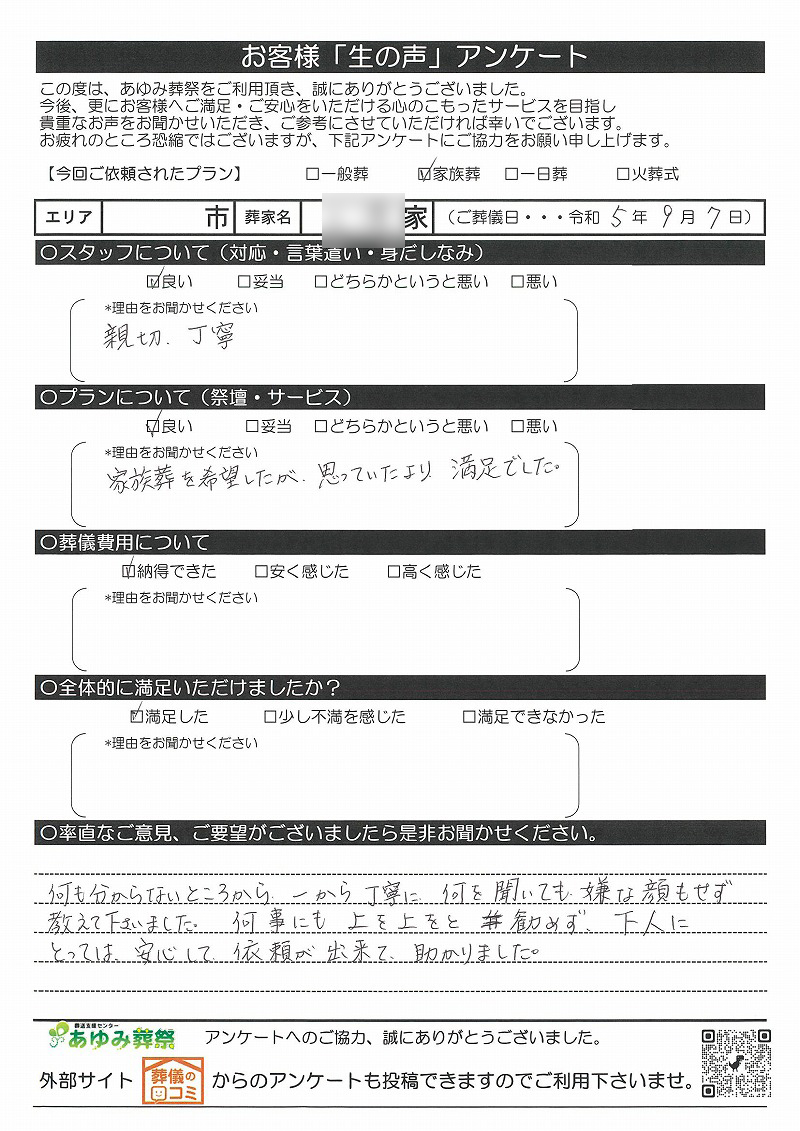 お客様「生の声」アンケート
この度は、あゆみ葬祭をご利用頂き、誠にありがとうございました。
今後、更にお客様へご満足・ご安心をいただける心のこもったサービスを目指し
貴重なお声をお聞かせいただき、ご参考にさせていただければ幸いでございます。
お疲れのところ恐縮ではございますが、下記アンケートにご協力をお願い申し上げます。
【今回ご依頼されたプラン】 □一般葬 ☑家族葬 □一日葬 □火葬式
エリア 市 葬家名 家 (ご葬儀日・・・令和 5 年 9 月 7 日)
○スタッフについて(対応・言葉遣い・身だしなみ)
☑良い □妥当 □どちらかというと悪い □悪い
*理由をお聞かせください
親切、丁寧
○プランについて(祭壇・サービス)
☑良い □妥当 □どちらかというと悪い □悪い
*理由をお聞かせください
家族葬を希望したが、思っていたより、満足でした。
○葬儀費用について
☑納得できた □安く感じた □高く感じた
*理由をお聞かせください
○全体的に満足いただけましたか？
☑満足した □少し不満を感じた □満足できなかった
*理由をお聞かせください
○率直なご意見、ご要望がございましたら是非お聞かせください。
何も分からないところから、一から丁寧に、何を聞いても嫌な顔もせず
教えて下さいました。何事にも上を上をと勧めず、下人に
とっては、安心して、依頼が出来て、助かりました。
葬送支援センター
あゆみ葬祭 アンケートへのご協力、誠にありがとうございました。
外部サイト 葬儀の口コミ からのアンケートも投稿できますのでご利用下さいませ。